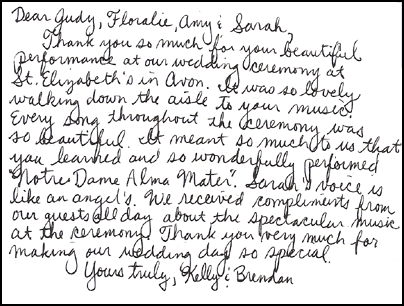 Dear Judy, Floralie, Amy & Sarah,
Thank you so much for your beautiful
performance at our wedding ceremony at
St. Elizabeth's in Avon. It was so lovely
walking down the aisle to your music!
Every song throughout the ceremony was
so beautiful. It meant so much to us that
you learned and so wonderfully performed
"Notre Dame Alma Mater". Sarah's voice is
like an angel's. We received compliments from
our guests all day about the spectacular music
at the ceremony. Thank you very much for
making our wedding day so special.
Yours truly, Kelly & Brendan